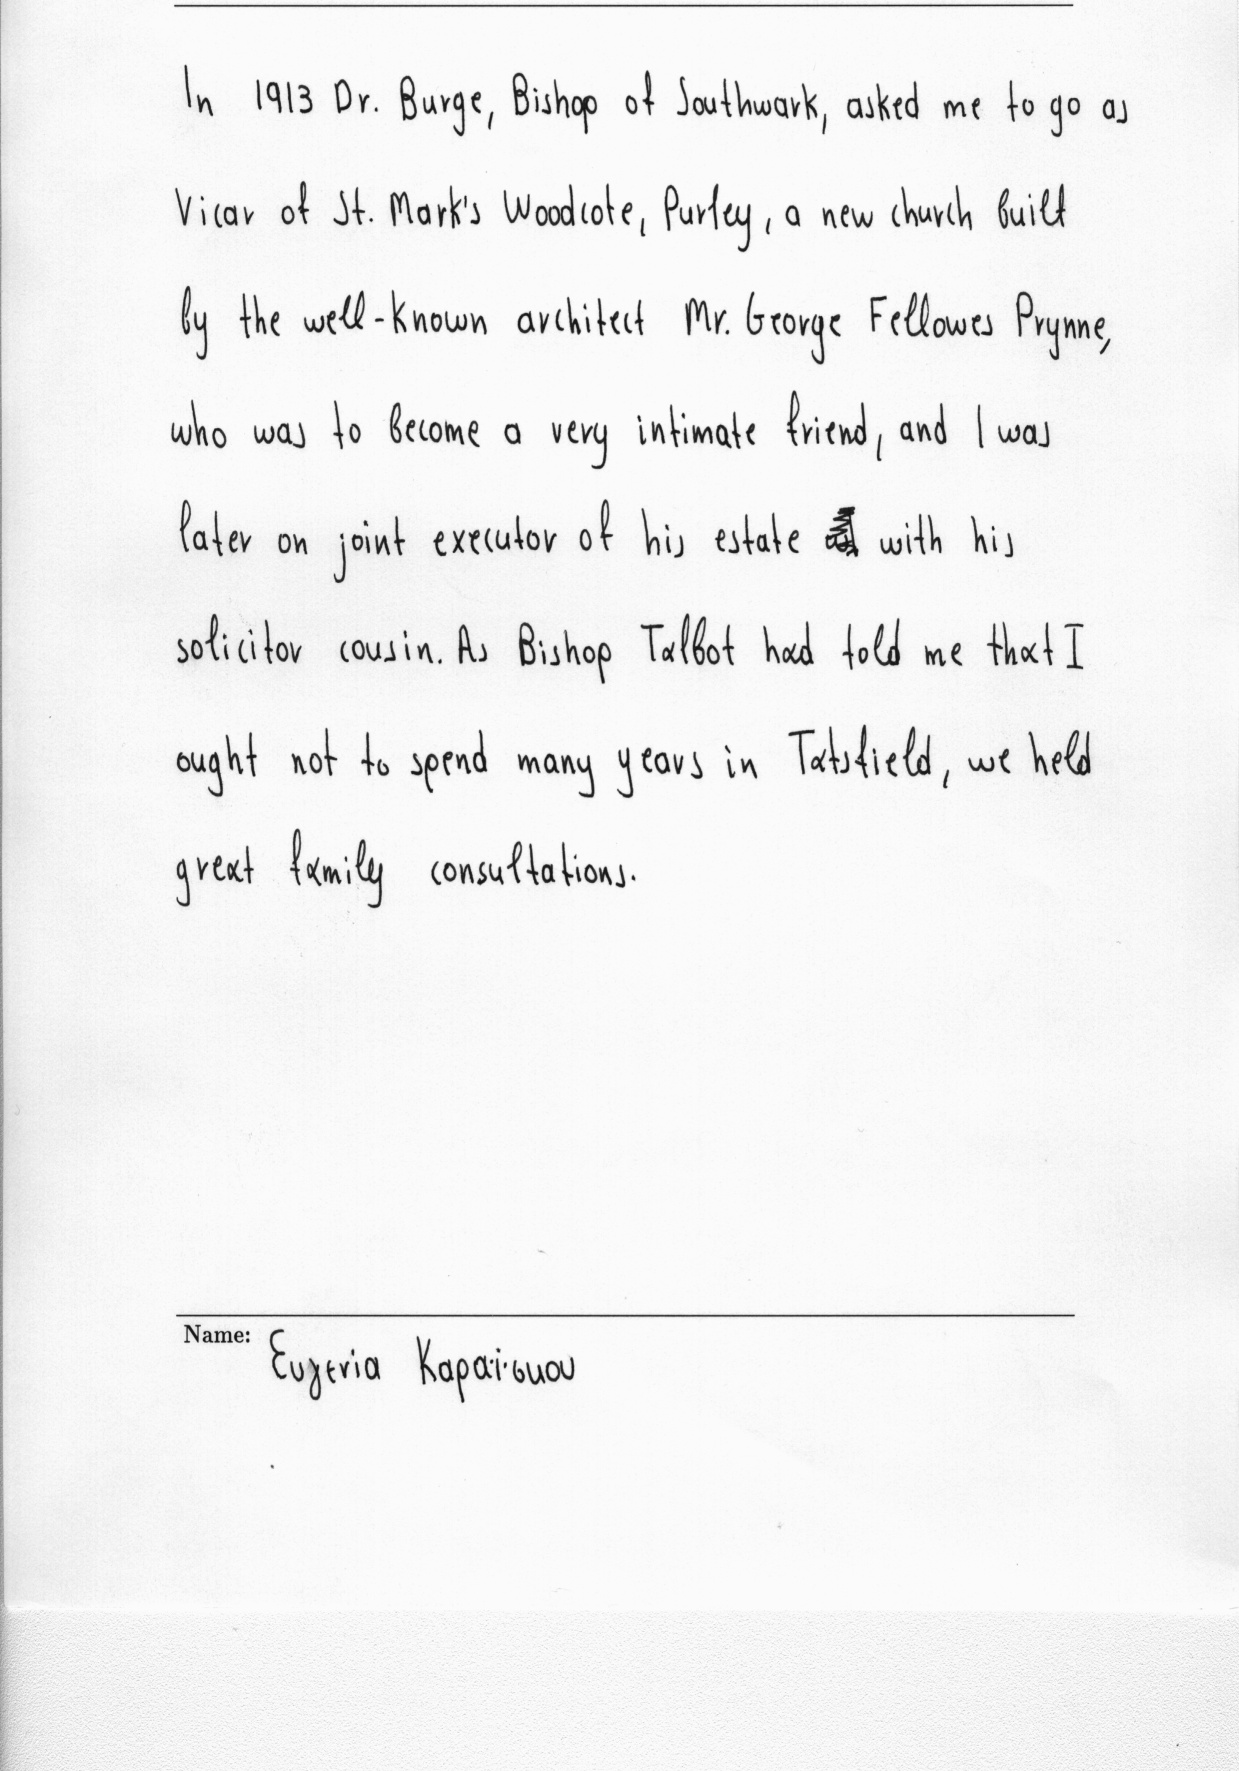 In 1913 Dr. Burge, Bishop of Southwark, asked me to go as
Vicar of St. Mark's Woodcote, Purley, a new church built
by the well-known architect Mr. George Fellowes Prynne,
who was to become a very intimate friend, and I was
later on joint executor of his estate with his
solicitor cousin. As Bishop Talbot had told me that I
ought not to spend many years in Tatsfield, we held
great family consultations.
Name: Ευγενία Καραΐσκου